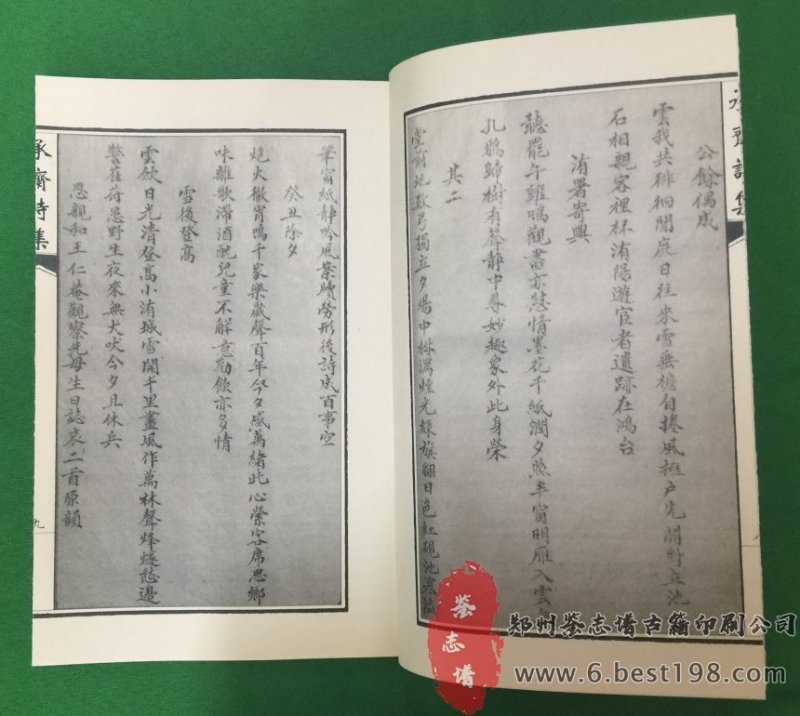 公餘偶成
雲我共徘徊閒庭日往來雪無檐自捲風撼戶先開對立池
石相親客裡杯洧陽遊宦者遺跡在鴻台
洧署寄興
聽罷午雞鳴觀書亦慰情墨花千紙潤夕照半窗明雁入雲
孔鵶歸樹有聲靜中尋妙趣象外此身榮
其二
堂前地數弓獨立夕陽中林滿恒光綠旗翻日色紅硯池寒
筆窗紙靜吟風案牘勞形後詩成百事空
癸丑除夕
炮火徹宵鳴千家樂歲聲百年今夕感萬緒此心縈客席思鄉
味離歌滯酒觥兒童不解意勸飲亦多情
雪後登高
雲歛日光清登高小洧城雪開千里畫風作萬林聲烽燧愁邊
警萑苻患野生夜來無犬吠今夕且休兵
恩親和王仁菴觀察先母生日誌哀二首原韻
承齋詩集
九
承齋詩集
鉴志谱
郑州鉴志谱古籍印刷公司
www.6.best198.com